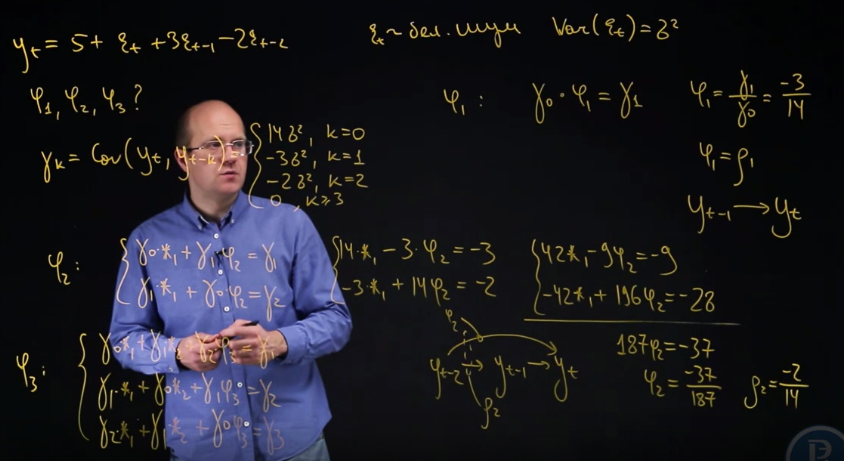 y_t = 5 + ε_t + 3ε_{t-1} - 2ε_{t-2}
ε_t ~ бел. шум Var(ε_t) = σ²
φ_1, φ_2, φ_3?
φ_1: γ_0 · φ_1 = γ_1
φ_1 = γ_1/γ_0 = -3/14
γ_k = Cov(y_t, y_{t-k}) = { 14σ², k=0
-3σ², k=1
-2σ², k=2
0, k≥3
φ_1 = ρ_1
y_{t-1} → y_t
φ_2: { γ_0·*_1 + γ_1 φ_2 = γ_1
γ_1·*_1 + γ_0·φ_2 = γ_2
{ 14·*_1 - 3·φ_2 = -3
-3·*_1 + 14φ_2 = -2
{ 42*_1 - 9φ_2 = -9
-42*_1 + 196φ_2 = -28
187φ_2 = -37
φ_2 = -37/187
ρ_2 = -2/14
φ_2
y_{t-2} → y_{t-1} → y_t
ρ_2
φ_3: { γ_0·*_1 + γ_1·*_2 + γ_2 φ_3 = γ_1
γ_1·*_1 + γ_0·*_2 + γ_1 φ_3 = γ_2
γ_2·*_1 + γ_1·*_2 + γ_0 φ_3 = γ_3